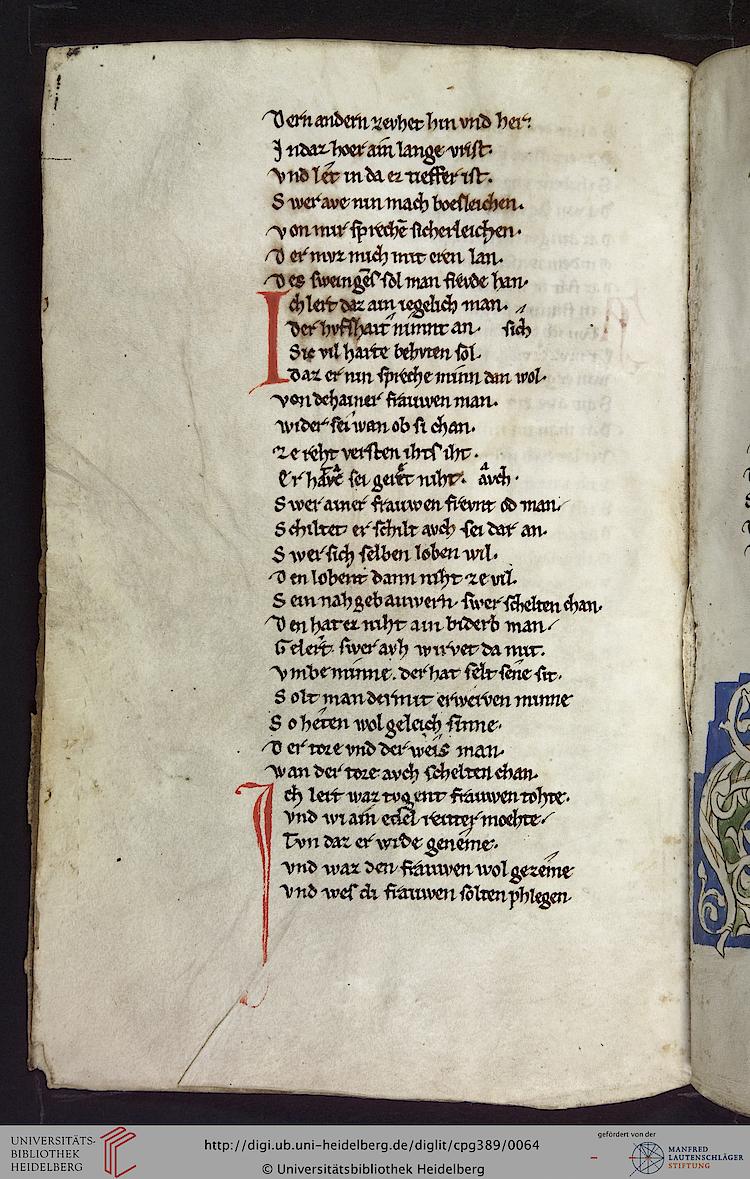 Dern andern zevhet hin vnd her:
Indaz hoer ain lange vrist.
vnd let in da ez tieffer ist.
Swer ave nin mach boesleichen.
von mir sprechē sicherleichen.
Der mvz mich mit eren lan.
Des sweingēs sol man frevde han.
Ich lert daz ain iegelich man.
der hvfshait nimmt an. sich
Sie vil harte behvten sol.
daz er nin spreche minn dan wol.
von dehainer frauwen man.
wider sei wan ob si chan.
ze reht versten ihts iht.
Er havͤt sei geret niht. avch.
Swer ainer frauwen frevnt od man.
Schiltet er schilt avch sei dar an.
Swer sich selben loben wil.
Den lobent dann niht ze vil.
Sein nahgebauwern. swer schelten chan.
Den hat ez niht ain biderb man.
Gelert. swer avh wirvet da mit.
vmbe minne. der hat selt sene sit.
Solt man dermit erwerven minne
So heten wol geleich sinne.
Der tore vnd der weis man.
wan der tore avch schelten chan.
Ich lert waz tvgent frauwen tohte.
vnd wi ain edel reitter moehte.
Tvn daz er wrde geneme.
vnd waz den frauwen wol gezeme
vnd wes di frauwen solten phlegen
UNIVERSITÄTS-
BIBLIOTHEK
HEIDELBERG
http://digi.ub.uni-heidelberg.de/diglit/cpg389/0064
© Universitätsbibliothek Heidelberg
gefördert von der
MANFRED
LAUTENSCHLÄGER
STIFTUNG